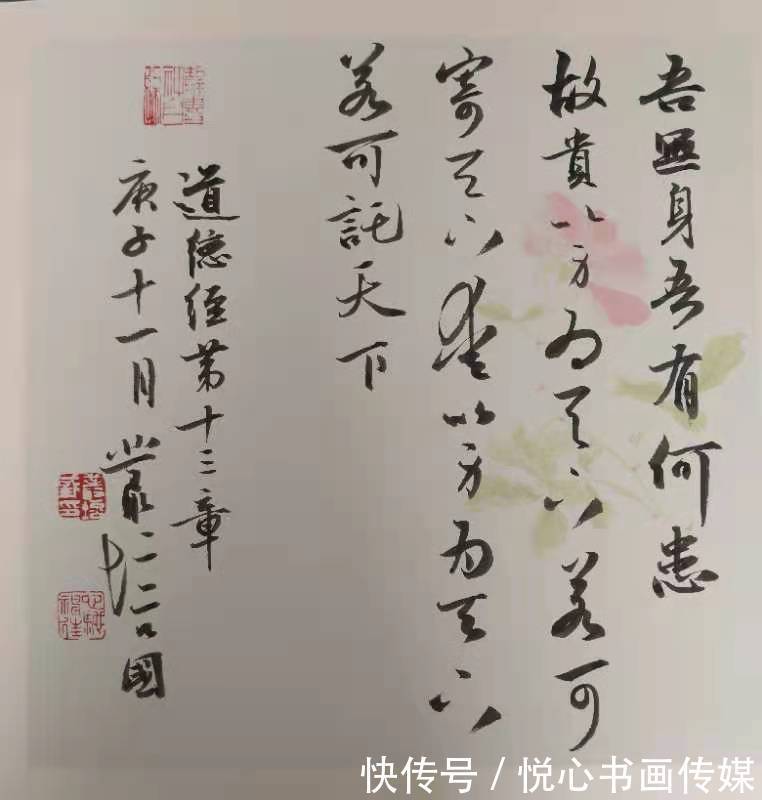 吾無身吾有何患
故貴以身為天下若可
寄天下愛以身為天下
若可託天下
道德經第十三章
庚子十一月
國
快传号 / 悦心书画传媒